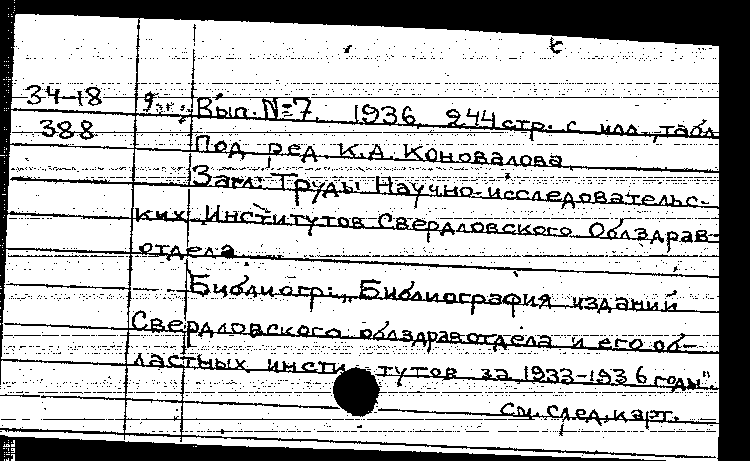 34-18 Вып. №7. 1936. 244 стр. с илл., табл
388
Под ред. К.А. Коновалова
Загл: Труды Научно-исследовательс-
ких Институтов Свердловского Облздрав-
отдела
Библиогр: „Библиография изданий
Свердловского облздравотдела и его об-
ластных инсти тутов за 1933-1936 годы".
См. след. карт.